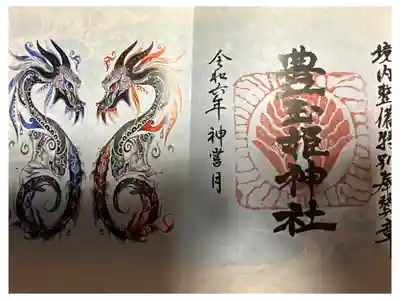 境内整備特別奉獎章
豊玉姫神社
令和六年 神嘗月